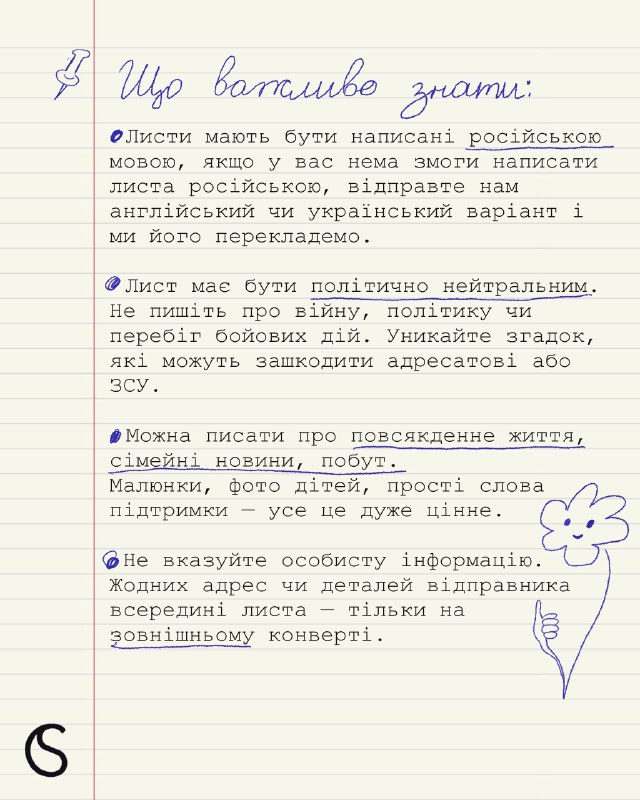 Що важливо знати:
Листи мають бути написані російською
мовою, якщо у вас нема змоги написати
листа російською, відправте нам
англійський чи український варіант і
ми його перекладемо.
Лист має бути політично нейтральним.
Не пишіть про війну, політику чи
перебіг бойових дій. Уникайте згадок,
які можуть зашкодити адресатові або
ЗСУ.
Можна писати про повсякденне життя,
сімейні новини, побут.
Малюнки, фото дітей, прості слова
підтримки — усе це дуже цінне.
Не вказуйте особисту інформацію.
Жодних адрес чи деталей відправника
всередині листа — тільки на
зовнішньому конверті.